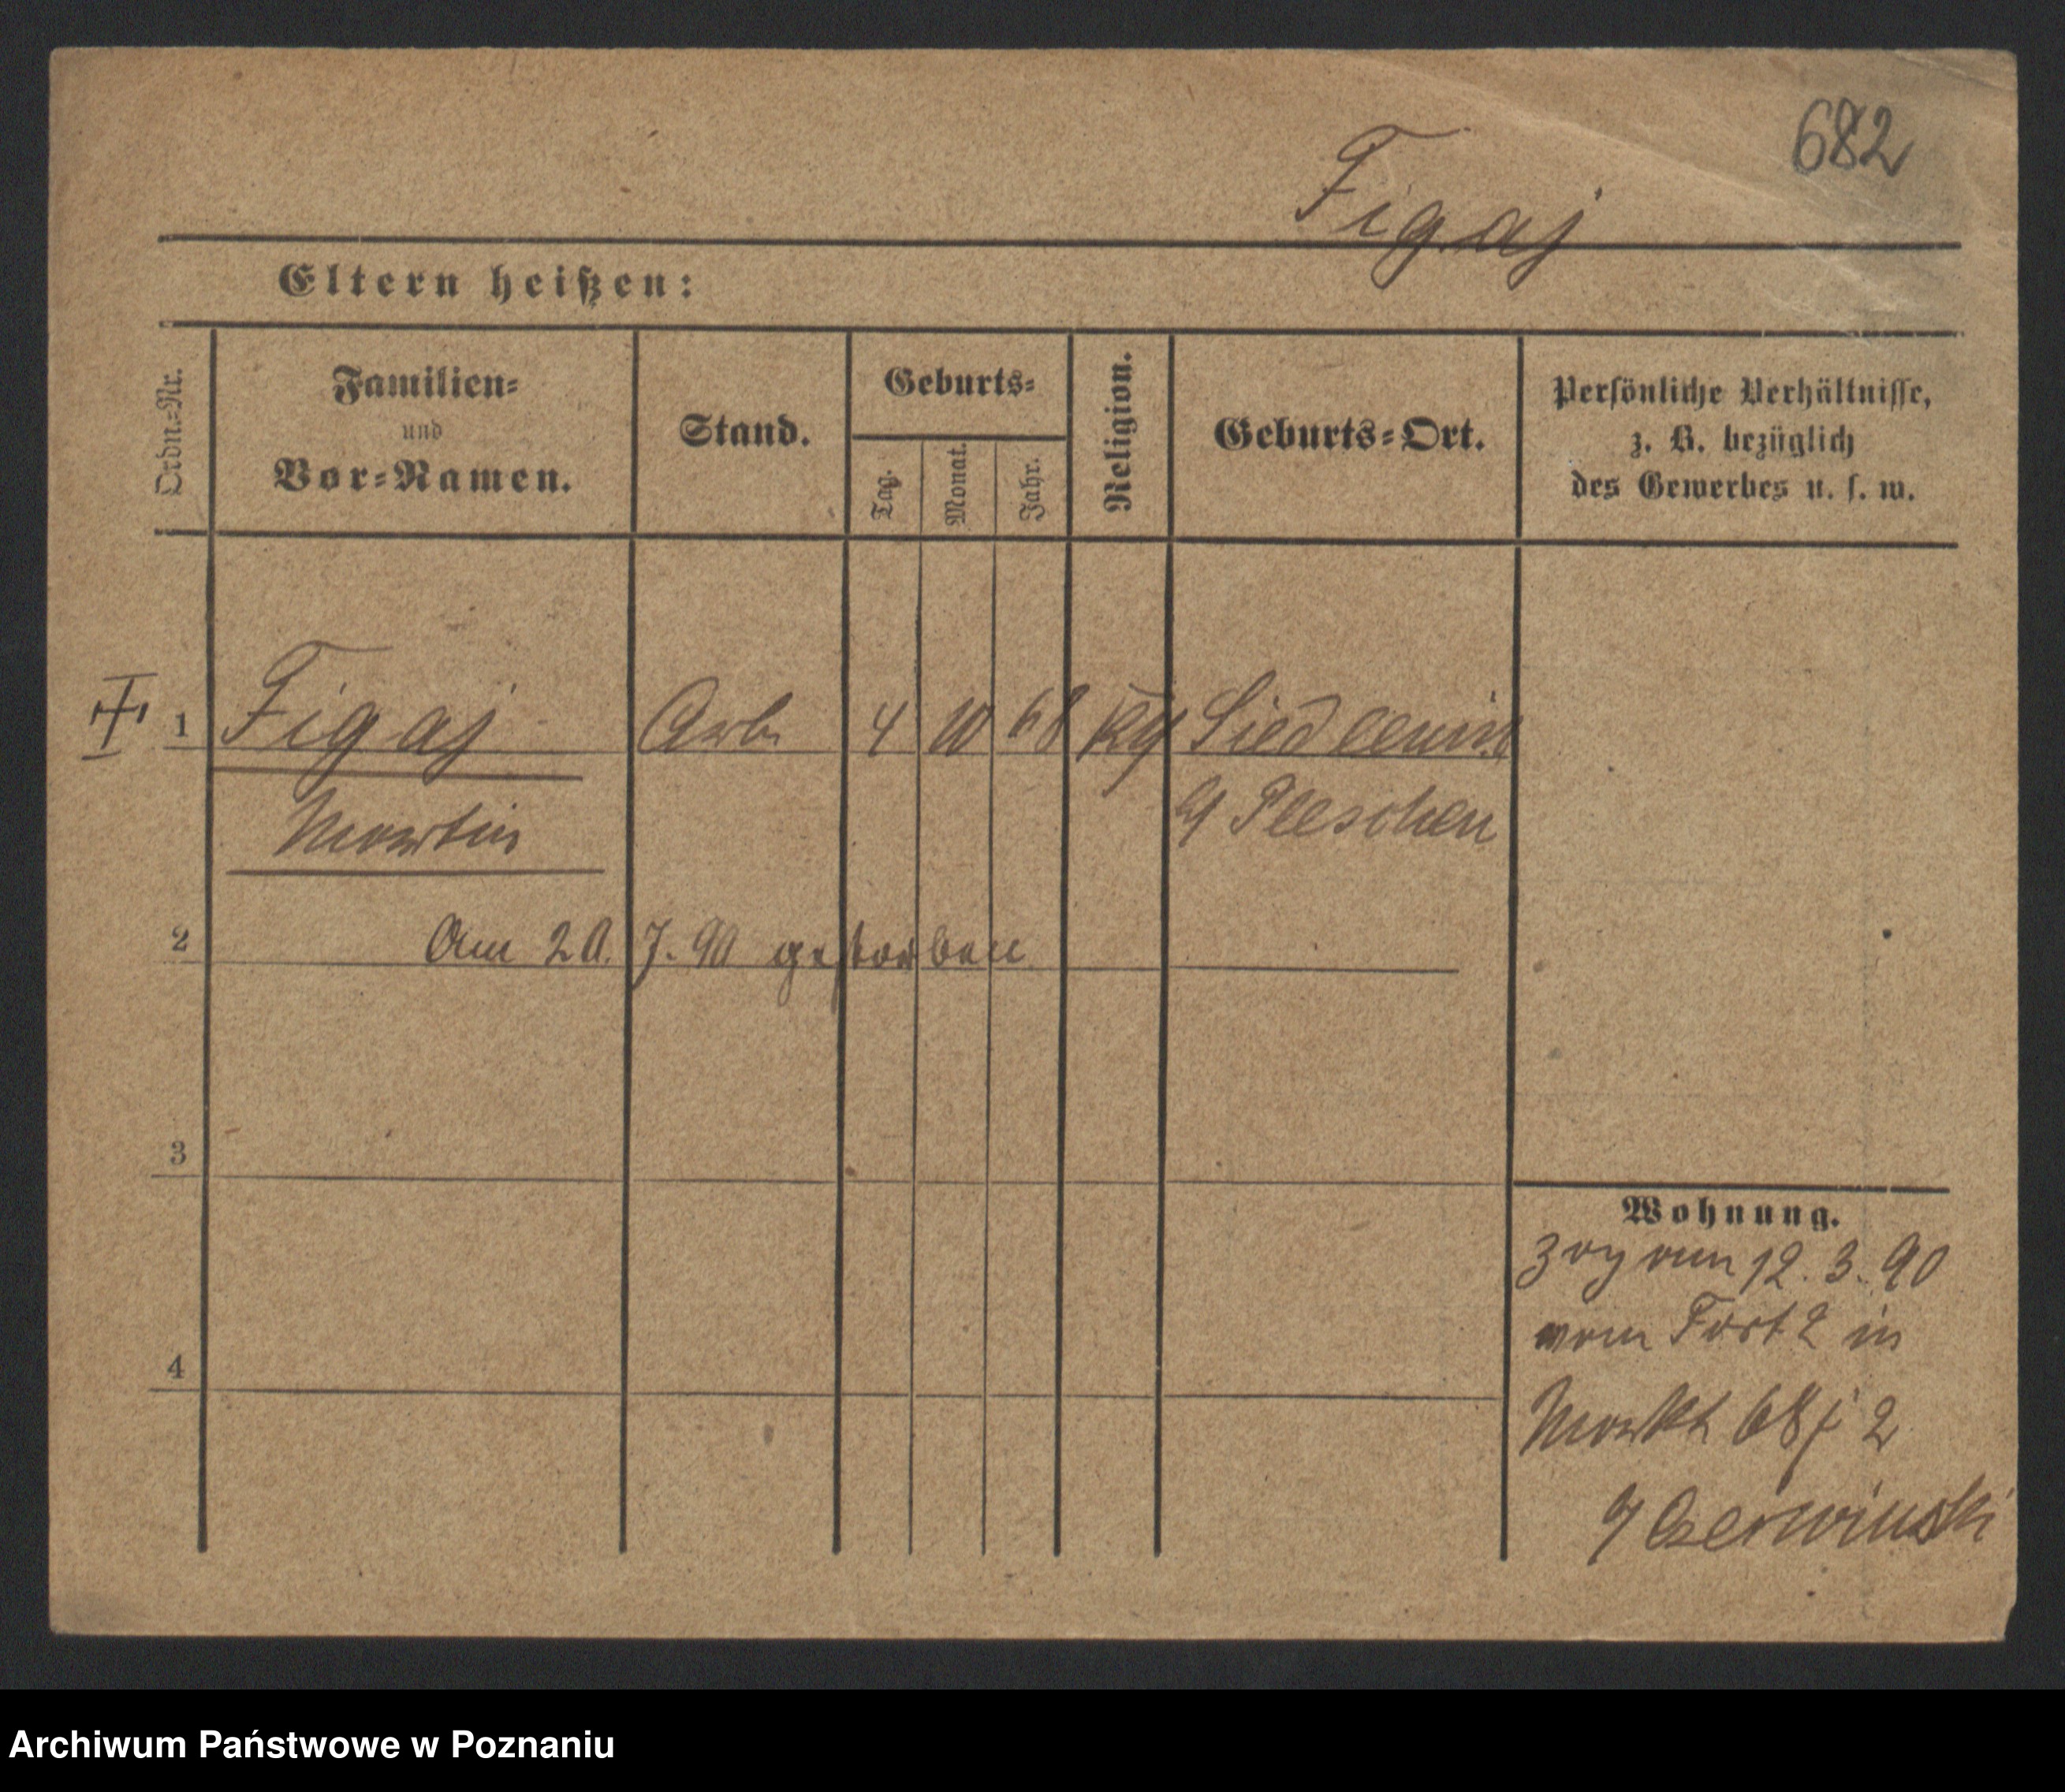 682
Figaj
Eltern heißen:
Ordn.=Nr.
Familien=
und
Vor=Namen.
Stand.
Geburts=
Tag.
Monat.
Jahr.
Religion.
Geburts=Ort.
Persönliche Verhältnisse,
z. B. bezüglich
des Gewerbes u. s. w.
1 Figaj Arb. 4 10 68 Siedlemin
Martin Pleschen
2 Am 20. 7. 90 gestorben
3
4
Wohnung.
Zog am 12. 3. 90
vom Fort 2 in
Markt 68 2
Czerwinski
Archiwum Państwowe w Poznaniu